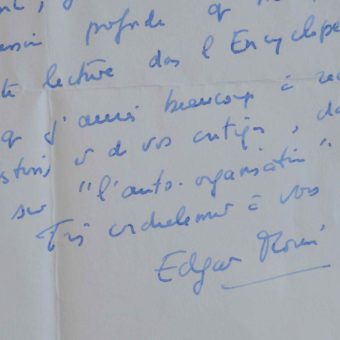 profonde
lecture dans l'Encyclope
j'aurais beaucoup à
et de vos critiques, da
sur "l'auto-organisation".
Très cordialement à vous
Edgar Morin